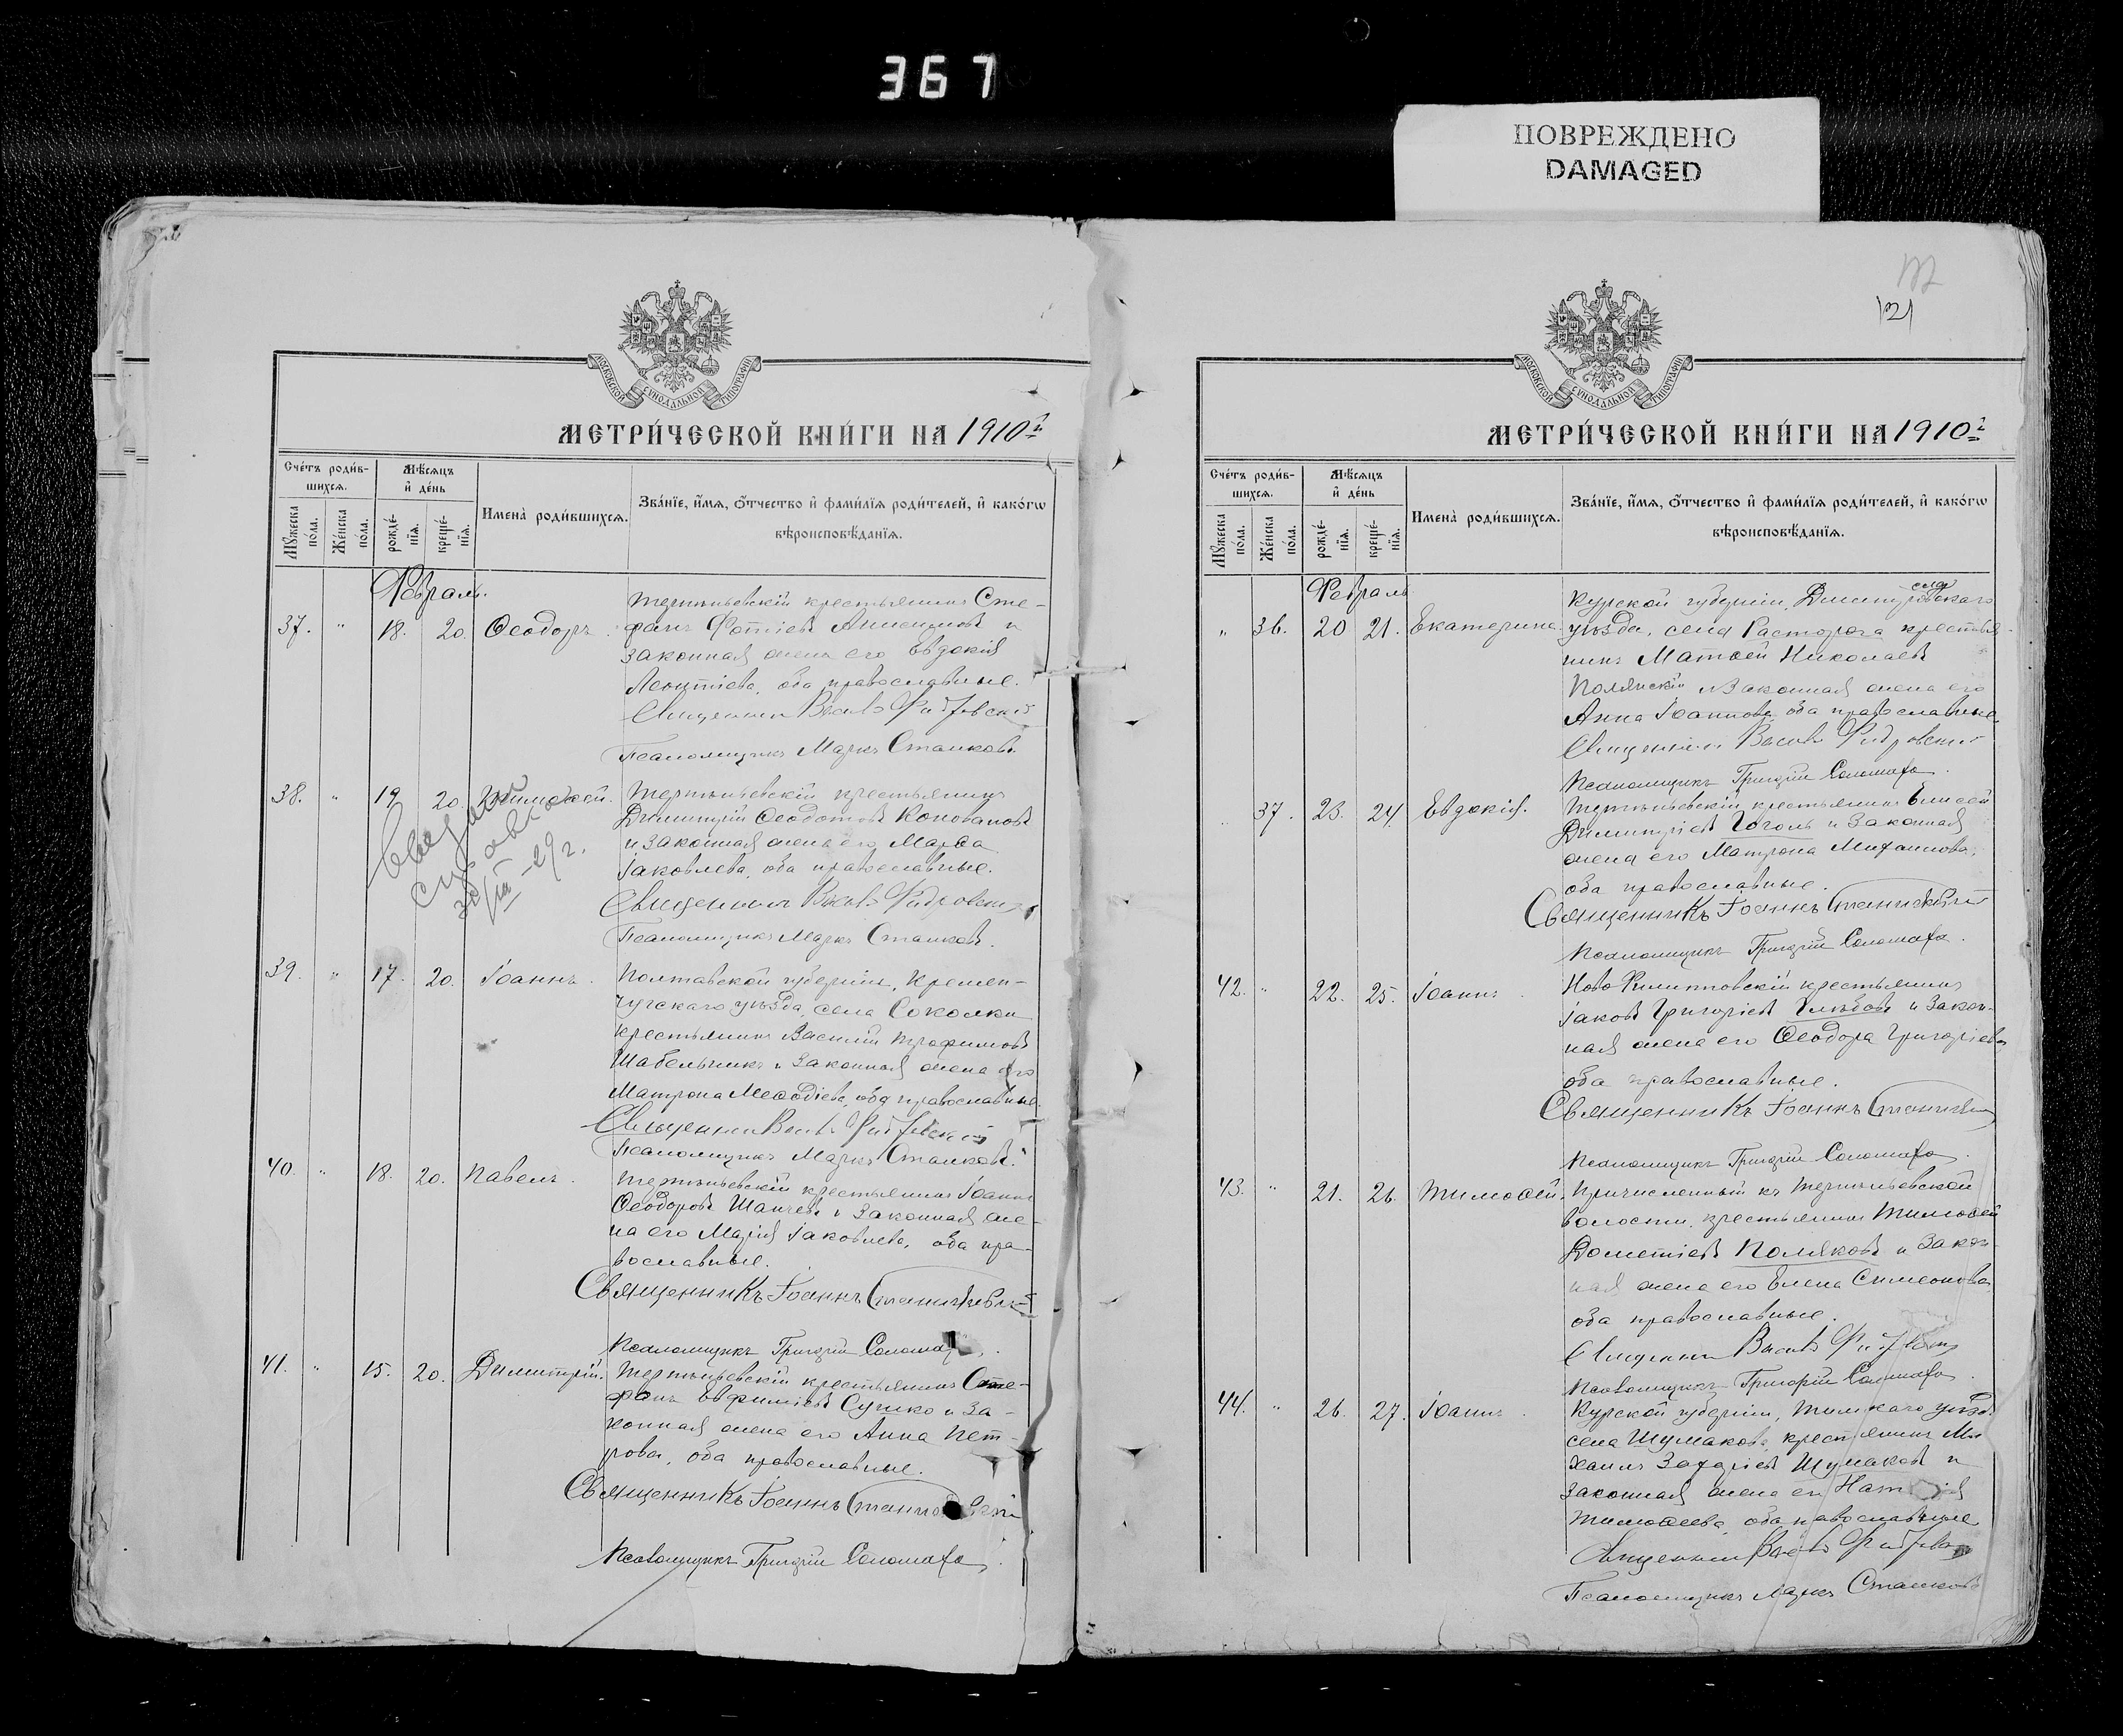 367
ПОВРЕЖДЕНО
DAMAGED
МОСКОВСКОЙ СѴНОДАЛЬНОЙ ТИПОГРАФІИ
МЕТРИ́ЧЕСКОЙ КНИ́ГИ НА 1910 г.
Сче́тъ роди́вшихся.
Мѣ́сяцъ и҆ де́нь
Мꙋ́жеска по́ла.
Же́нска по́ла.
рожде́нїя.
креще́нїя.
Имена̀ роди́вшихся.
Зва́нїе, и҆́мя, ѻ҆́тчество и҆ фами́лїя роди́телей, и҆ како́гѡ
вѣроисповѣ́данїя.
Февраль.
37. " 18. 20. Ѳеодоръ. Терпѣньевскій крестьянинъ Сте-
фанъ Фотіевъ и
законная жена его Евдокія
Леонтіева, оба православные.
Священникъ
Псаломщикъ Маркъ Сташковъ.
38. " 19 20. Тимоѳей. Терпѣньевскій крестьянинъ
Димитрій Ѳеодотовъ Коновановъ
и законная жена его Марѳа
Іаковлева, оба православные.
Священникъ
Псаломщикъ Маркъ Сташковъ.
Введены
30/III-29 г.
39. " 17. 20. Іоаннъ. Полтавской губерніи, Кремен-
чугскаго уѣзда, села Соколки
крестьянинъ Василій Трофимовъ
Шабельникъ и законная жена его
Матрона Меѳодіева, оба православные.
Священникъ
Псаломщикъ Маркъ Сташковъ.
40. " 18. 20. Павелъ. Терпѣньевскій крестьянинъ Іоаннъ
Ѳеодоровъ и законная же-
на его Марія Іаковлева, оба пра-
вославные.
Священникъ Іоаннъ
Псаломщикъ Григорій Соломаха.
41. " 15. 20. Димитрій. Терпѣньевскій крестьянинъ Сте-
фанъ Евфиміевъ Сушко и за-
конная жена его Анна Пет-
рова, оба православные.
Священникъ Іоаннъ
Псаломщикъ Григорій Соломаха.
121
МОСКОВСКОЙ СѴНОДАЛЬНОЙ ТИПОГРАФІИ
МЕТРИ́ЧЕСКОЙ КНИ́ГИ НА 1910 г.
Сче́тъ роди́вшихся.
Мѣ́сяцъ и҆ де́нь
Мꙋ́жеска по́ла.
Же́нска по́ла.
рожде́нїя.
креще́нїя.
Имена̀ роди́вшихся.
Зва́нїе, и҆́мя, ѻ҆́тчество и҆ фами́лїя роди́телей, и҆ како́гѡ
вѣроисповѣ́данїя.
Февраль
" 36. 20 21. Екатерина. Курской губерніи,
уѣзда, села Расторога крестья-
нинъ Матѳей Николаевъ
Полянскій и законная жена его
Анна Іоаннова, оба православные.
Священникъ
Псаломщикъ Григорій Соломаха.
" 37. 23. 24. Евдокія. Терпѣньевскій крестьянинъ Елисей
Димитріевъ Гоголь и законная
жена его Матрона Михаилова,
оба православные.
Священникъ Іоаннъ
Псаломщикъ Григорій Соломаха.
42. " 22. 25. Іоаннъ. Ново Филипповскій крестьянинъ
Іаковъ Григоріевъ Глѣбовъ и закон-
ная жена его Ѳеодора Григоріева,
оба православные.
Священникъ Іоаннъ
Псаломщикъ Григорій Соломаха.
43. " 21. 26. Тимоѳей. Причисленный къ Терпѣньевской
волости, крестьянинъ Тимоѳей
Дометіевъ Поляковъ и закон-
ная жена его Елена Симеонова,
оба православные.
Священникъ
Псаломщикъ Григорій Соломаха.
44. " 26. 27. Іоаннъ. Курской губерніи, Тимскаго уѣзда
села Шумакова, крестьянинъ Ми-
хаилъ Захаріевъ Шумаковъ и
законная жена его
Тимоѳеева, оба православные
Священникъ
Псаломщикъ Маркъ Сташковъ